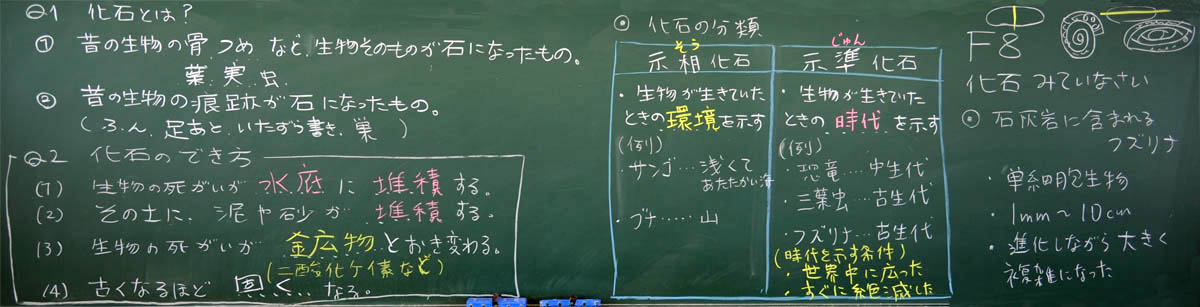 Q1 化石とは?
① 昔の生物の骨、つめ など、生物そのものが石になったもの。
葉、実、虫、
② 昔の生物の痕跡が石になったもの。
(ふん、足あと、いたずら書き、巣)
Q2 化石のでき方
(1) 生物の死がいが 水底 に 堆積 する。
(2) その上に、泥や砂が 堆積 する。
(3) 生物の死がいが 鉱物 とおき変わる。
(二酸化ケイ素など)
(4) 古くなるほど 固く なる。
◎ 化石の分類
そう
示相化石
・生物が生きていた
ときの環境を示す
(例)
サンゴ…浅くて
あたたかい海
・ブナ……山
じゅん
示準化石
・生物が生きていた
ときの 時代 を示す
(例)
・恐竜…中生代
・三葉虫…古生代
・フズリナ…古生代
(時代を示す条件)
・世界中に広った
・すぐに絶滅した
F8
化石 みていなさい
◎ 石灰岩に含まれる
フズリナ
・単細胞生物
・1mm~10cm
・進化しながら大きく
複雑になった